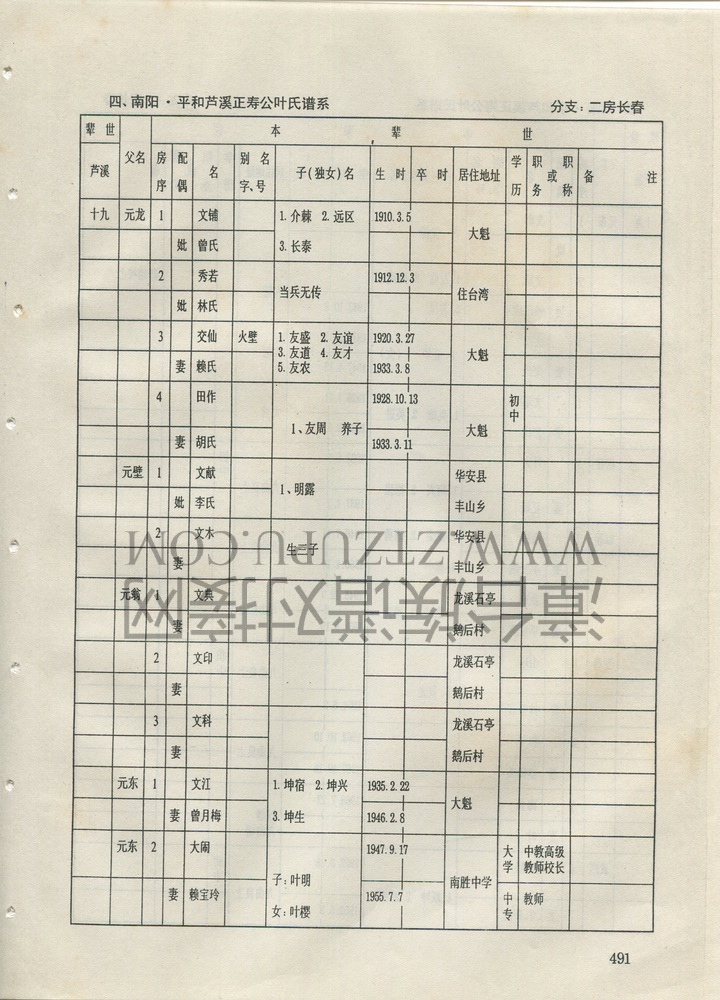 四、南阳·平和芦溪正寿公叶氏谱系 分支：二房长春
辈世 本辈世
芦溪 父名 房序 配偶 名 别名字、号 子(独女)名 生时 卒时 居住地址 学历 职务或职称 备注
十九 元龙 1 文铺 1.介棘 2.远区 1910.3.5 大魁
妣 曾氏 3.长泰
2 秀若 当兵无传 1912.12.3 住台湾
妣 林氏
3 交仙 火壁 1.友盛 2.友谊 1920.3.27 大魁
3.友道 4.友才
妻 赖氏 5.友农 1933.3.8
4 田作 1、友周 养子 1928.10.13 大魁 初中
妻 胡氏 1933.3.11
元壁 1 文献 1、明露 华安县
妣 李氏 丰山乡
2 文木 生三子 华安县
妻 丰山乡
元翁 1 文典 龙溪石亭
妻 鹅后村
2 文印 龙溪石亭
妻 鹅后村
3 文科 龙溪石亭
妻 鹅后村
元东 1 文江 1.坤宿 2.坤兴 1935.2.22 大魁
妻 曾月梅 3.坤生 1946.2.8
元东 2 大闹 子:叶明 1947.9.17 南胜中学 大学 中教高级教师校长
妻 赖宝玲 女:叶樱 1955.7.7 中专 教师
WWW.ZTZUPU.COM
漳台族谱对接网
491